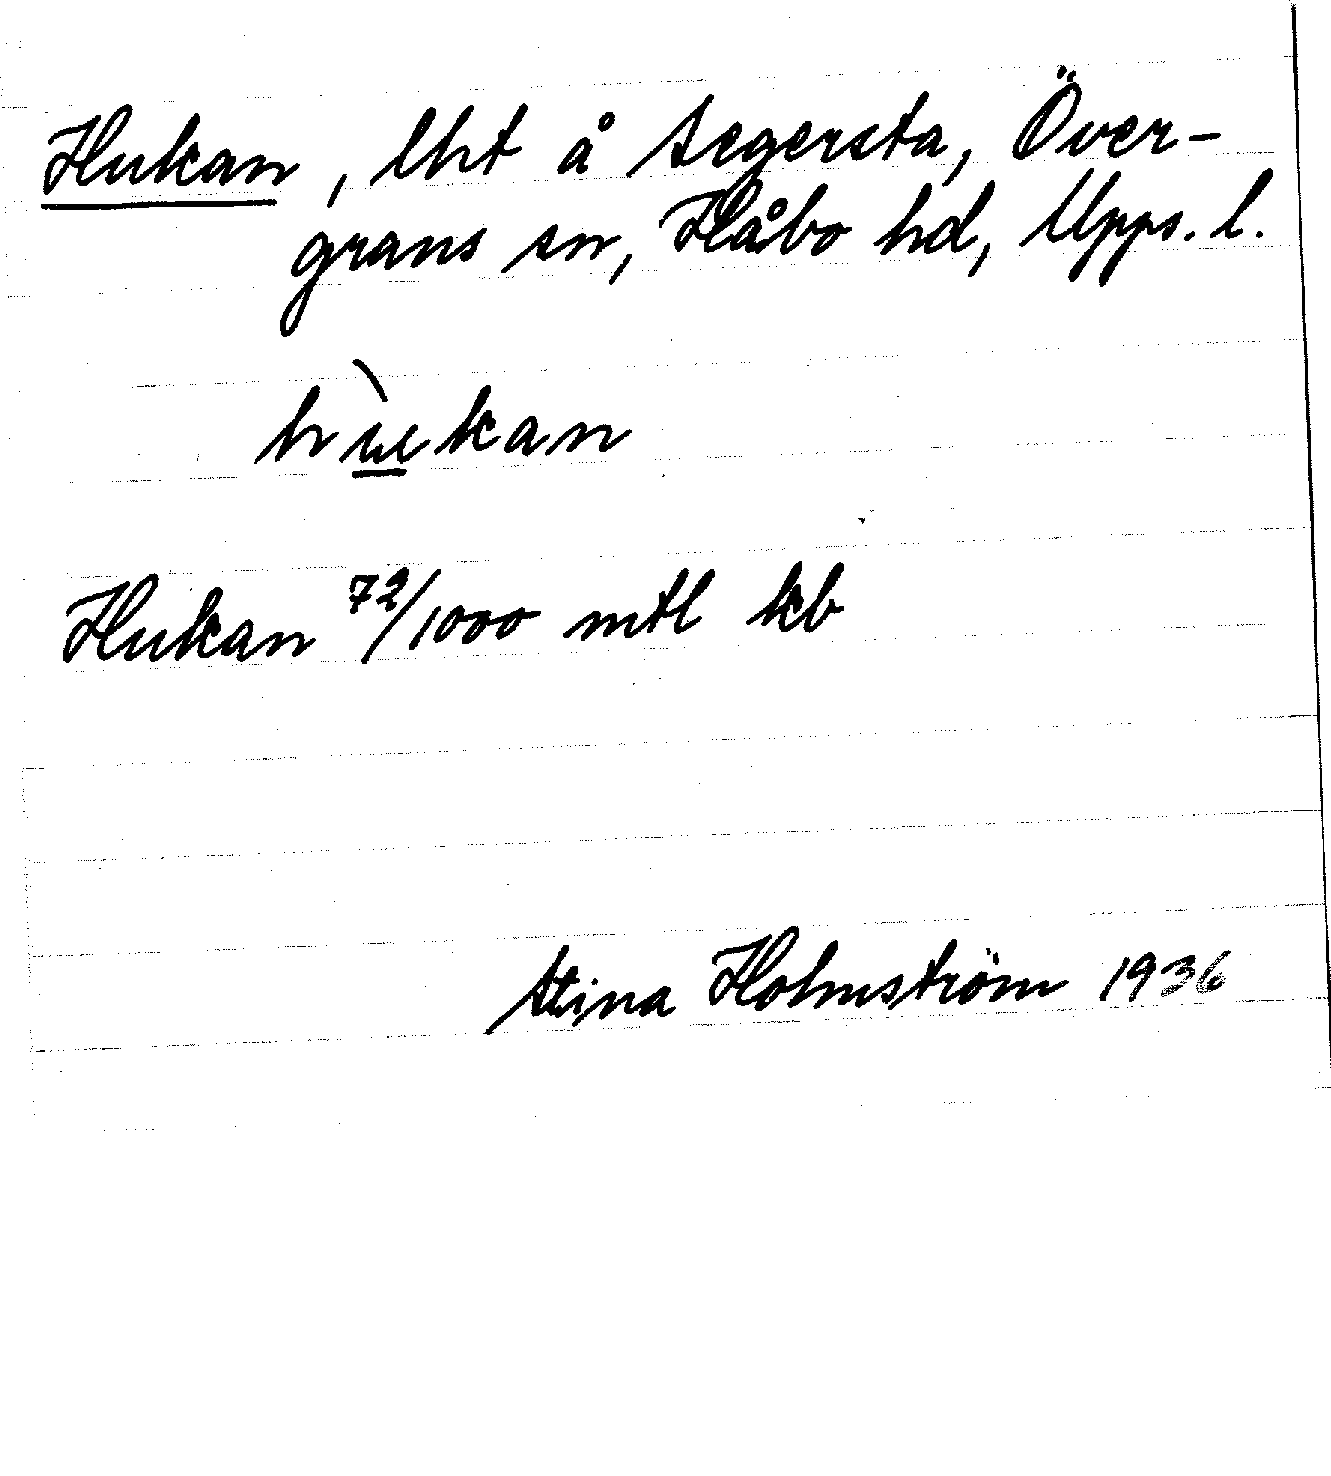 Hukan, lht å Segersta, Över-
grans sn, Håbo hd, Upps. l.
hùkan
Hukan 72/1000 mtl kb
Stina Holmström 1936